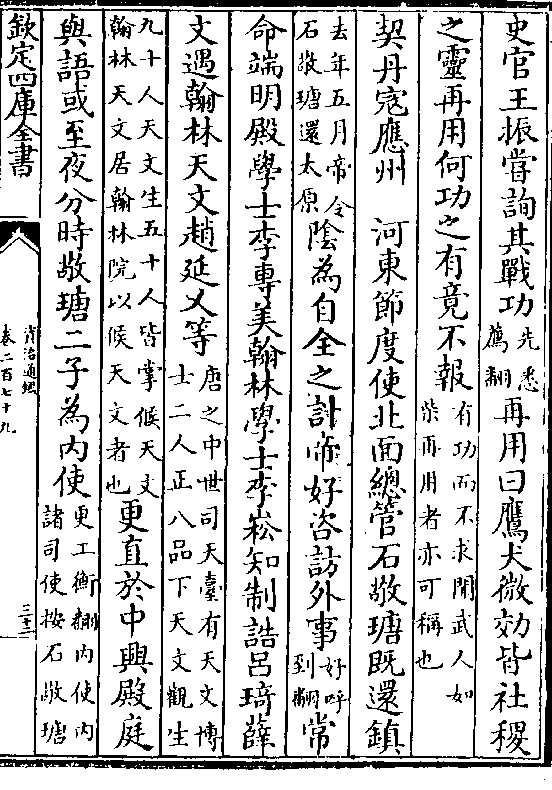 史官王振嘗詢其戰功先悉薦翻再用曰鷹犬微効皆社稷
之靈再用何功之有竟不報有功而不求聞武人如柴再用者亦可稱也
契丹寇應州　河東節度使北面總管石敬瑭既還鎮
去年五月帝令石敬瑭還太原陰為自全之計帝好咨訪外事好呼到翻常
命端明殿學士李專美翰林學士李崧知制誥呂琦薛
文遇翰林天文趙延乂等唐之中世司天臺有天文博士二人正八品下天文觀生
九十人天文生五十人皆掌候天文翰林天文居翰林院以候天文者也更直於中興殿庭
與語或至夜分時敬瑭二子為内使更工衡翻内使内諸司使按石敬瑭
欽定四庫全書
資治通鑑
卷二百七十九
三十二